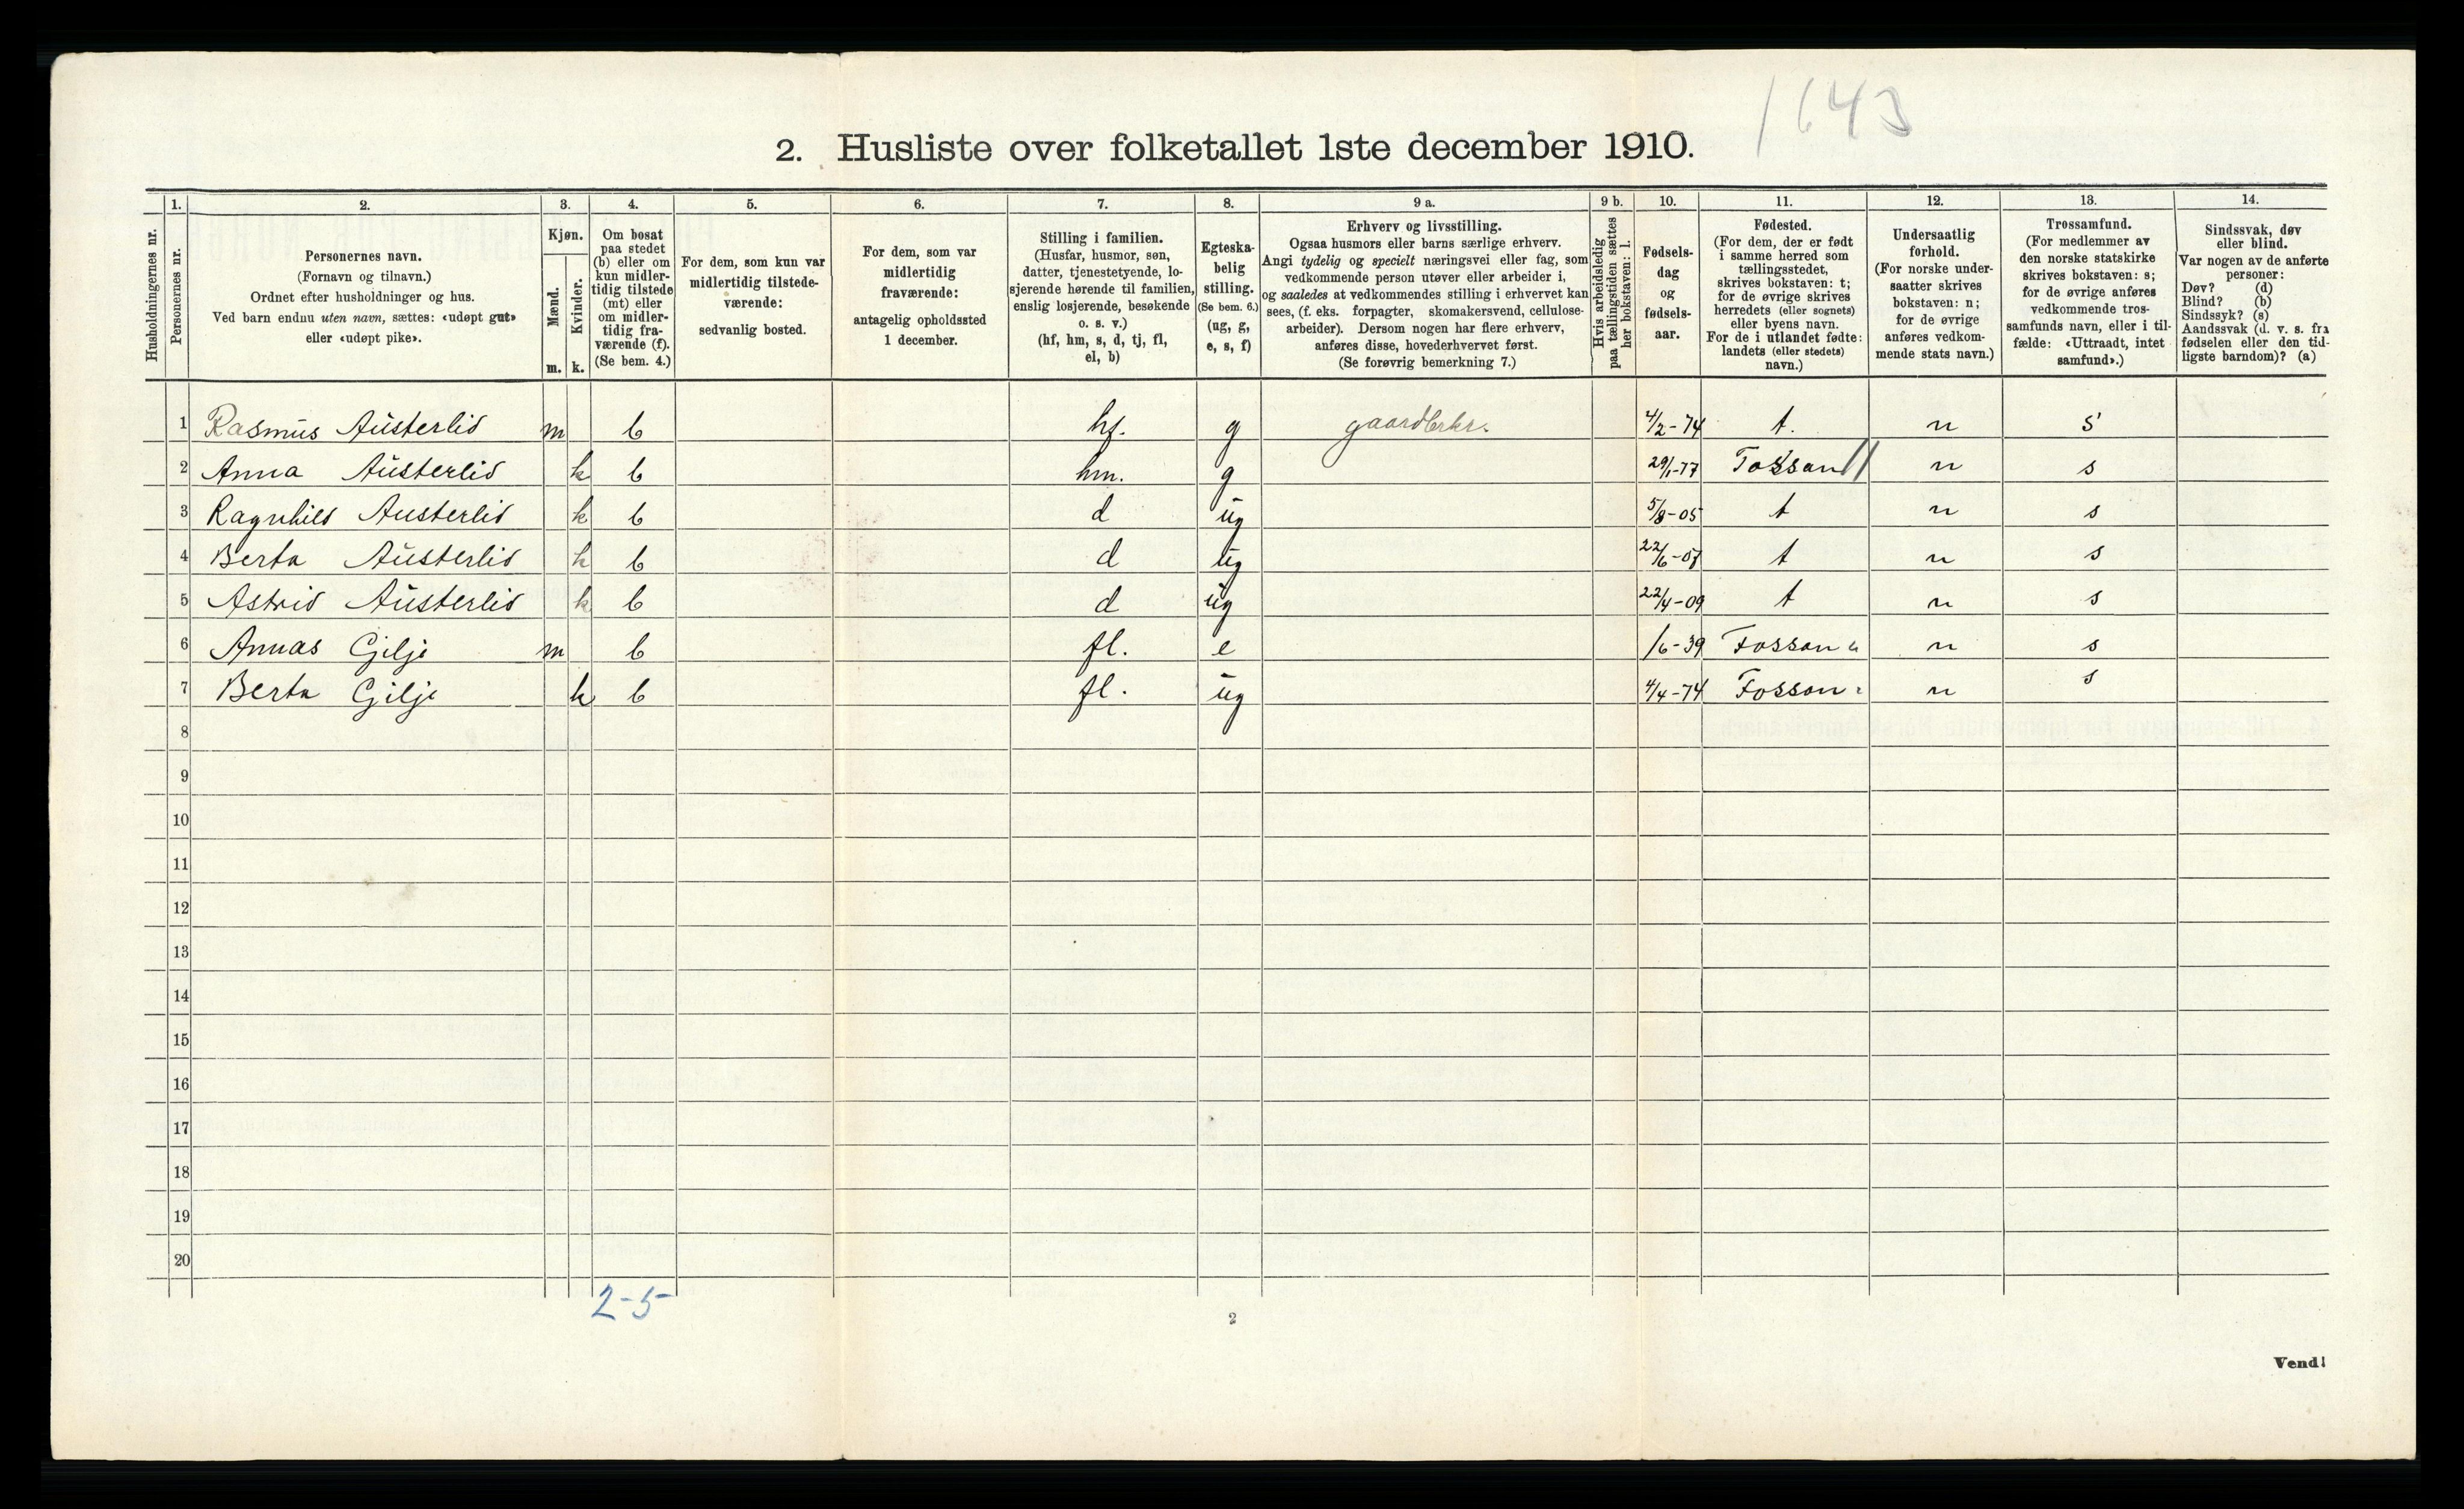 1643
2. Husliste over folketallet 1ste december 1910.
Husholdningernes nr.
1. Personernes nr.
2. Personernes navn.
(Fornavn og tilnavn.)
Ordnet efter husholdninger og hus.
Ved barn endnu uten navn, sættes: «udøpt gut»
eller «udøpt pike».
3. Kjøn.
Mænd. Kvinder.
m. k.
4. Om bosat
paa stedet
(b) eller om
kun midler-
tidig tilstede
(mt) eller
om midler-
tidig fra-
værende (f).
(Se bem. 4.)
5. For dem, som kun var
midlertidig tilstede-
værende:
sedvanlig bosted.
6. For dem, som var
midlertidig
fraværende:
antagelig opholdssted
1 december.
7. Stilling i familien.
(Husfar, husmor, søn,
datter, tjenestetyende, lo-
sjerende hørende til familien,
enslig losjerende, besøkende
o. s. v.)
(hf, hm, s, d, tj, fl,
el, b)
8. Egteska-
belig
stilling.
(Se bem. 6.)
(ug, g,
e, s, f)
9 a. Erhverv og livsstilling.
Ogsaa husmors eller barns særlige erhverv.
Angi tydelig og specielt næringsvei eller fag, som
vedkommende person utøver eller arbeider i,
og saaledes at vedkommendes stilling i erhvervet kan
sees, (f. eks. forpagter, skomakersvend, cellulose-
arbeider). Dersom nogen har flere erhverv,
anføres disse, hovederhvervet først.
(Se forøvrig bemerkning 7.)
9 b. Hvis arbeidsledig
paa tællingstiden sættes
her bokstaven: l.
10. Fødsels-
dag
og
fødsels-
aar.
11. Fødested.
(For dem, der er født
i samme herred som
tællingsstedet,
skrives bokstaven: t;
for de øvrige skrives
herredets (eller sognets)
eller byens navn.
For de i utlandet fødte:
landets (eller stedets)
navn.)
12. Undersaatlig
forhold.
(For norske under-
saatter skrives
bokstaven: n;
for de øvrige
anføres vedkom-
mende stats navn.)
13. Trossamfund.
(For medlemmer av
den norske statskirke
skrives bokstaven: s;
for de øvrige anføres
vedkommende tros-
samfunds navn, eller i til-
fælde: «Uttraadt, intet
samfund».)
14. Sindssvak, døv
eller blind.
Var nogen av de anførte
personer:
Døv? (d)
Blind? (b)
Sindssyk? (s)
Aandssvak (d. v. s. fra
fødselen eller den tid-
ligste barndom)? (a)
1 Rasmus Austerlid m b hf. g gaardbrkr. 4/2-74 t. n s
2 Anna Austerlid k b hm. g 29/1-77 Fossan n s
3 Ragnhild Austerlid k b d ug 5/8-05 t n s
4 Berta Austerlid k b d ug 22/6-07 t n s
5 Astrid Austerlid k b d ug 22/4-09 t n s
6 Annas Gilje m b fl. e 1/6-39 Fossan n s
7 Berta Gilje k b fl. ug 4/4-74 Fossan n s
8
9
10
11
12
13
14
15
16
17
18
19
20
2-5
2
Vend!